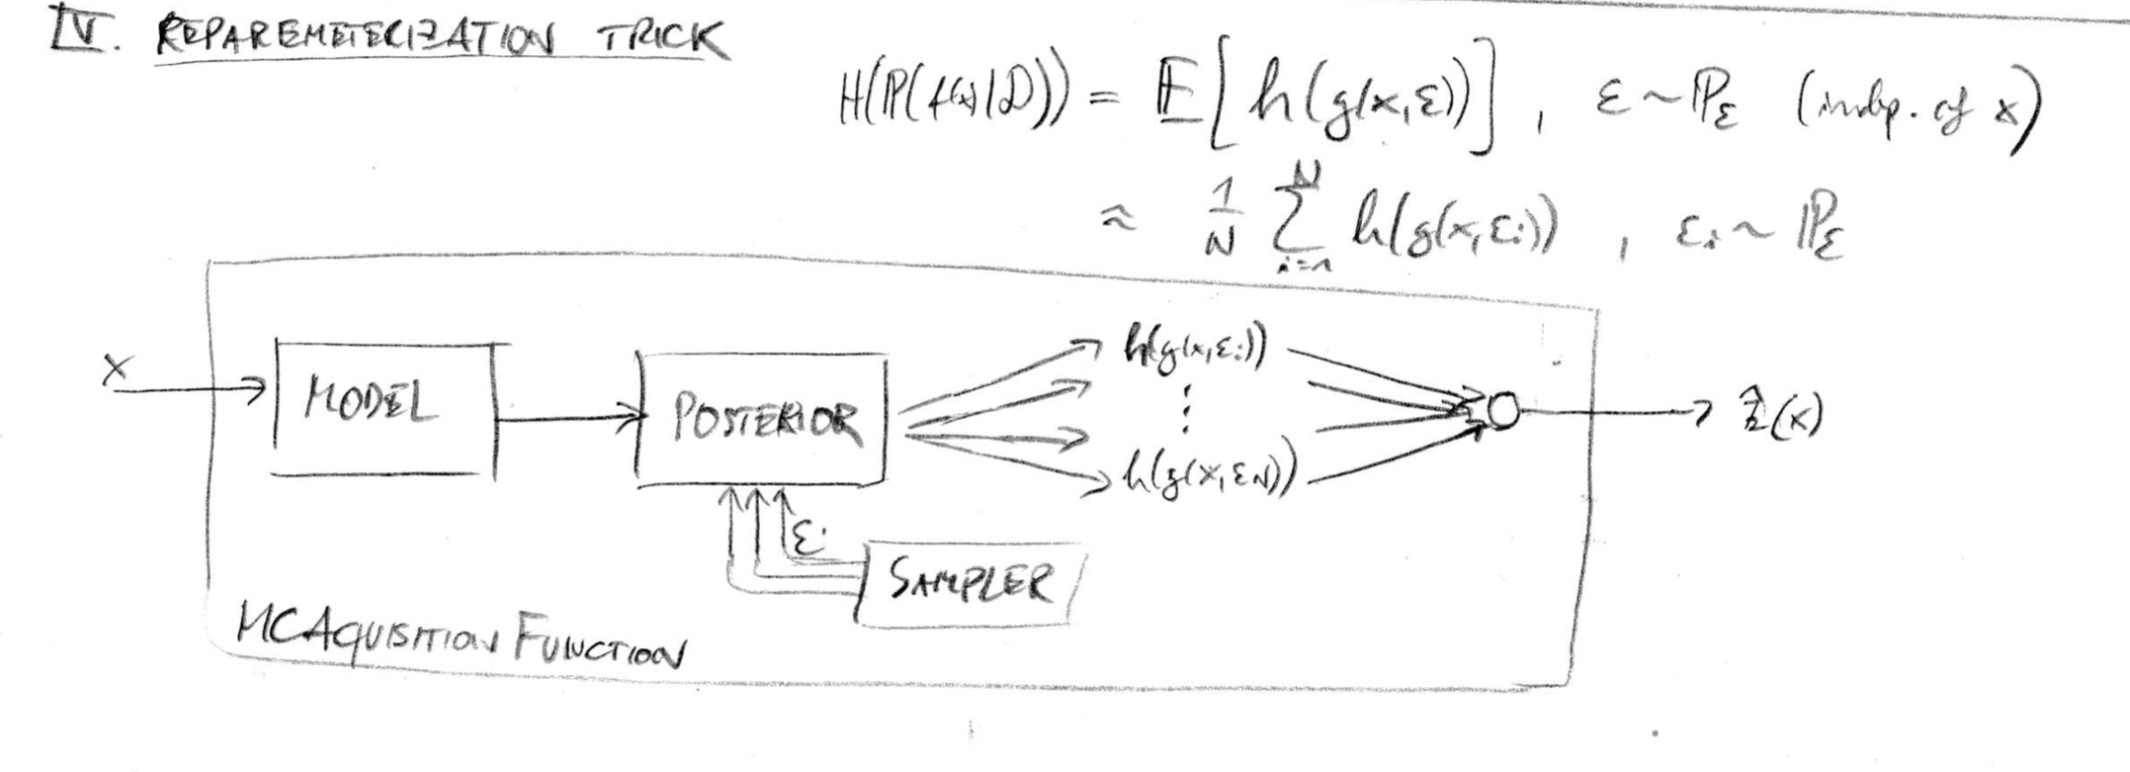 IV. REPAREMETERIZATION TRICK
H(ℙ(f(x)|𝒟)) = 𝔼[h(g(x,ε))], ε ~ ℙ_ε (indp. of x)
≈ 1/N ∑_{i=1}^{N} h(g(x,ε_i)), ε_i ~ ℙ_ε
x
MODEL
POSTERIOR
h(g(x,ε_i))
⋮
h(g(x,ε_N))
(x)
ε_i
SAMPLER
MCAQUISITION FUNCTION